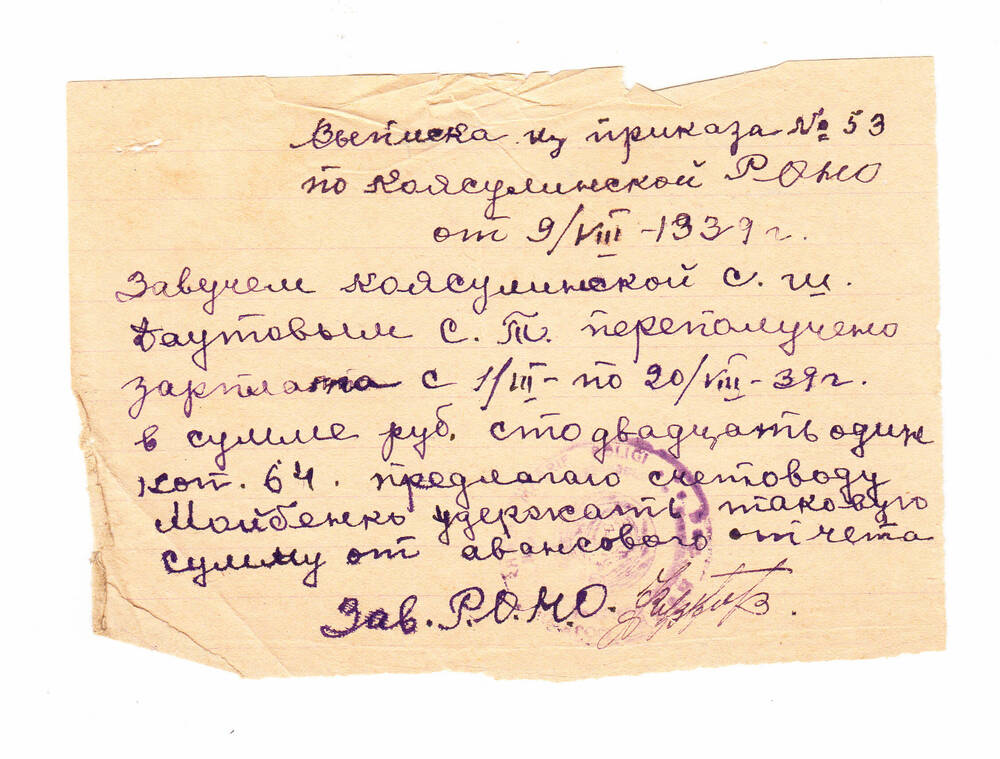 Выписка из приказа № 53
по Коясулинской РОНО
от 9/VIII-1939 г.
Завучем Коясулинской с. ш.
Даутовым С. Т. переполучено
зарплата с 1/III- по 20/VIII-39 г.
в сумме руб. сто двадцать один
коп. 64. предлагаю счетоводу
Мойбенко удержать таковую
сумму от авансового отчета
Зав. Р.О.Н.О.